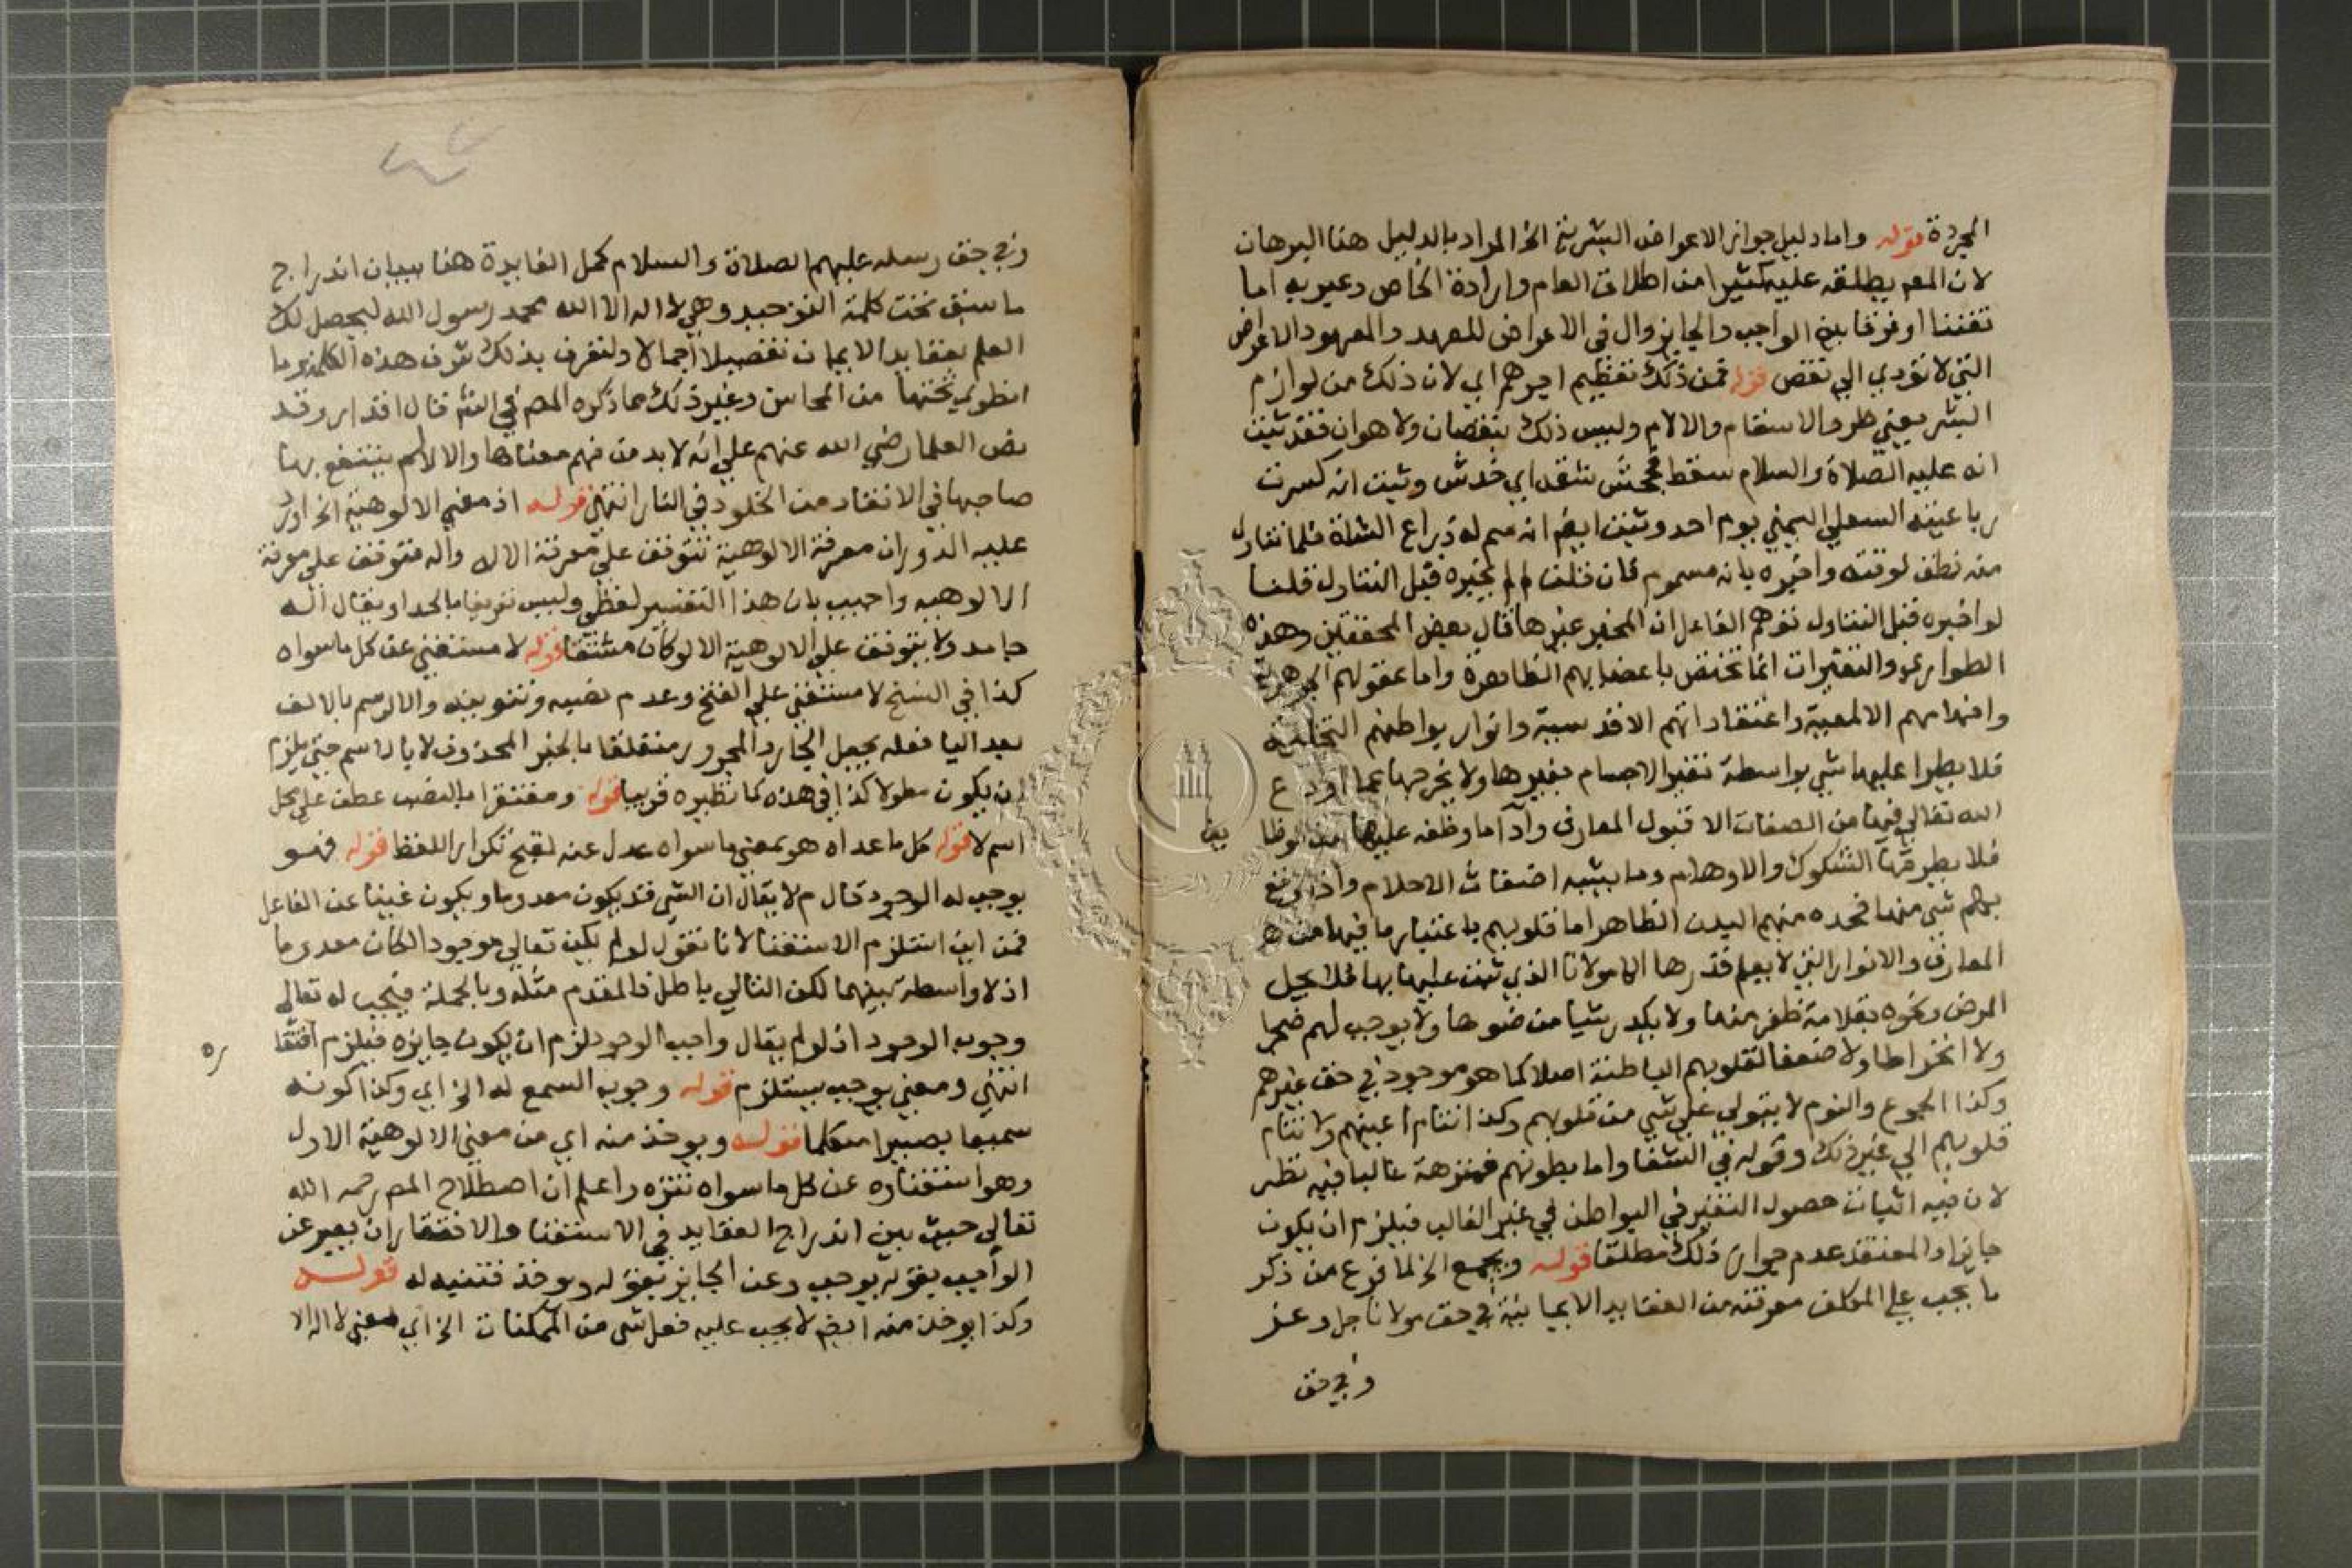 المجردة قوله واما دليل جواز الاعراض البشرية الخ المراد بالدليل هنا البرهان
لان المص يطلقه عليه كثيرا من اطلاق العام وارادة الخاص وعبر به اما
تفننا او فرقا بين الواجب والجايز وال في الاعراض للعهد والمعهود الاعراض
التي لا تودي الي نقص قوله فمن ذلك تعظيم اجرهم اي لان ذلك من لوازم
البشر يعني طرو الاسقام والالام وليس ذلك بنقصان ولا هوان فقد ثبت
انه عليه الصلاة والسلام سقط فجحش شقه اي خدش وثبت انه كسرت
رباعيته السفلي اليمني يوم احد وثبت ايضم انه سم له ذراع الشاة فلما تناول
منه نطق لوقته واخبره بانه مسموم فان قلت لم لم يخبره قبل التناول قلنا
لو اخبره قبل التناول توهم الغافل ان المخبر غيرها قال بعض المحققين وهذه
الطواري والتغيرات انما تختص باعضايهم الظاهرة واما عقولهم الجوهرية
وافهامهم الالمعية واعتقاداتهم الاقدسية وانوار بواطنهم
فلا يطرا عليها شي بواسطة تغير الاجسام بغيرها ولا يخرجها عما اودع
الله تعالي فيها من الصفات الا قبول المعارف وادآ ما وظفه عليها من الوظا
يف
فلا يطرقها الشكوك والاوهام وما يشبه اضغاث الاحلام واذا وقع
بهم شي منها فحده منهم البدن الظاهر اما قلوبهم باعتبار ما فيها من
المعارف والانوار التي لا يعلم قدرها الا مولانا الذي منت عليها بها فلا يحيل
المرض ونحوه بقلامة ظفر منها ولا يكدر شيا من ضوها ولا يوجب لهم ضجرا
ولا انخراطا ولا ضعفا لقلوبهم الباطنة اصلا كما هو موجود في حق غيرهم
وكذا الجوع والنوم لا يتولي علي شي من قلوبهم وكذا تنام اعينهم ولا تنام
قلوبهم الي غير ذلك وقوله في الشفا واما بطونهم فمنزهة غالبا فيه نظر
لان فيه اثبات حصول التغير في البواطن في غير الغالب فيلزم ان يكون
جايزا والمعتقد عدم جواز ذلك مطلقا قوله ويجمع الخ لما فرغ من ذكر
ما يجب علي المكلف معرفته من العقايد الايمانية في حق مولانا جل وعز
وفي حق
وفي حق رسله عليهم الصلاة والسلام كمل الفايدة هنا ببيان اندراج
ما سبق تحت كلمة التوحيد وهي لا اله الا الله محمد رسول الله ليحصل لك
العلم بعقايد الايمان تفصيلا اجمالا ولتعرف بذلك شرف هذه الكلمة وما
انطوي تحتها من المحاسن وغير ذلك مما ذكره المص في الشم قال اقدار وقد
نص العلما رضي الله عنهم علي انه لا بد من فهم معناها والا لم ينتفع بها
صاحبها في الانقاد من الخلود في النار انتهي قوله اذ معني الالوهية الخ اورد
عليه الدور ان معرفة الالوهية تتوقف علي معرفة الاله واله متوقف علي معرفة
الالوهيه واجيب بان هذا التفسير لفظي وليس تعريفا بالحد او يقال اله
جامد ولا يتوقف علي الالوهية الا لو كان مشتقا قوله لا مستغني عن كل ما سواه
كذا في النسخ لا مستغني علي الفتح وعدم نصبه وتنوينه والا لرسم بالالف
بعد اليا فعله يجعل الجار والمجرور متعلقا بالخبر المحذوف لا باسم حتي يلزم
ان يكون مطولا كذا في هذه كما نظيره قريبا قوله ومفتقرا بالنصب عطف علي محل
اسم لا قوله كل ما عداه هو بمعني ما سواه عدل عنه لقبح تكرار اللفظ قوله فهو
يوجب له الوجود قال م لا يقال ان الشي قد يكون معدوما ويكون غنيا عن الفاعل
فمن اين استلزم الاستغنا لانا نقول لو لم يكن تعالي موجودا لكان معدوما
اذ لا واسطة بينهما لكن التالي باطل فالمقدم مثله وبالجملة فيجب له تعالي
وجوب الوجود اذ لو لم يقال واجب الوجود لزم ان يكون جايزه فيلزم افتقا
ره
انتهي ومعني يوجب يستلزم قوله وجوب السمع له الخ اي وكذا كونه
سميعا بصيرا متكلما قوله ويوخذ منه اي من معني الالوهية الاول
وهو استغناوه عن كل ما سواه تنزه واعلم ان اصطلاح المص رحمه الله
تعالي حيث بين اندراج العقايد في الاستغنا والافتقار ان يعبر عن
الواجب بقوله يوجب وعن الجايز بقوله ويوخذ فتنبه له قوله
وكذا يوخذ منه ايضم لا يجب عليه فعل شي من الممكنات الخ اي لمعني لا اله الا